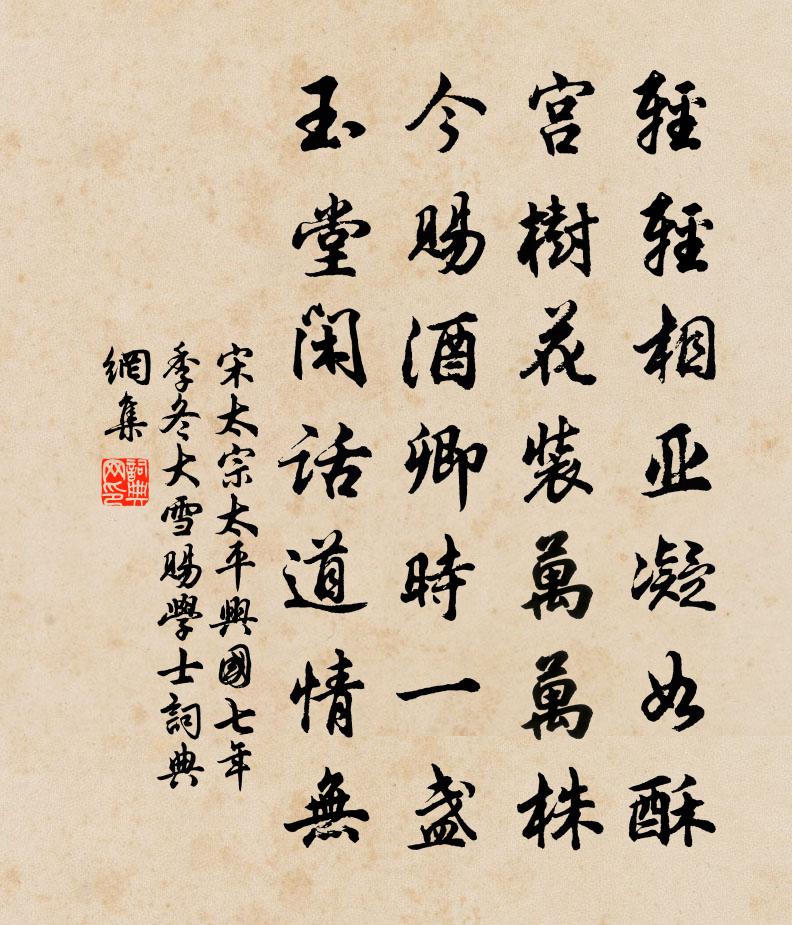 輕輕相亚凝如酥
宫樹花裝萬萬株
今賜酒卿時一盏
玉堂閑話道情無
宋太宗太平興國七年
季冬大雪賜學士詞典
網集
詞典网印